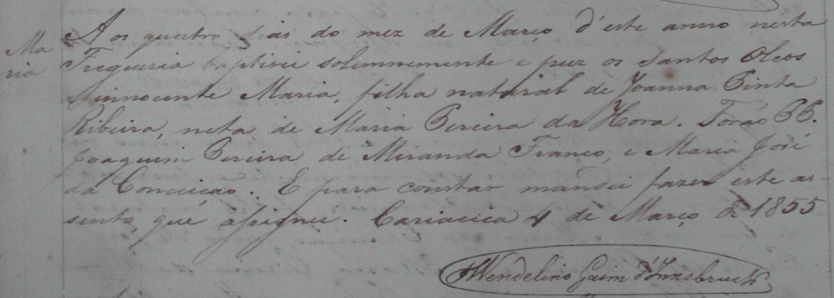 Aos quatro dias do mez de Março d'este anno nesta
Ma
ria
Freguezia baptizei solemnemente e puz os Santos Oleos
a innocente Maria, filha natural de Joanna Pinta
Ribeira, neta de Maria Pereira da Hora. Forão PP.
Joaquim Pereira de Miranda Franco, e Maria José
da Conceicão. E para constar mandei fazer este as-
sento, que assignei. Cariacica 4 de Março de 1855
Fr Wendelino d'Innsbruck